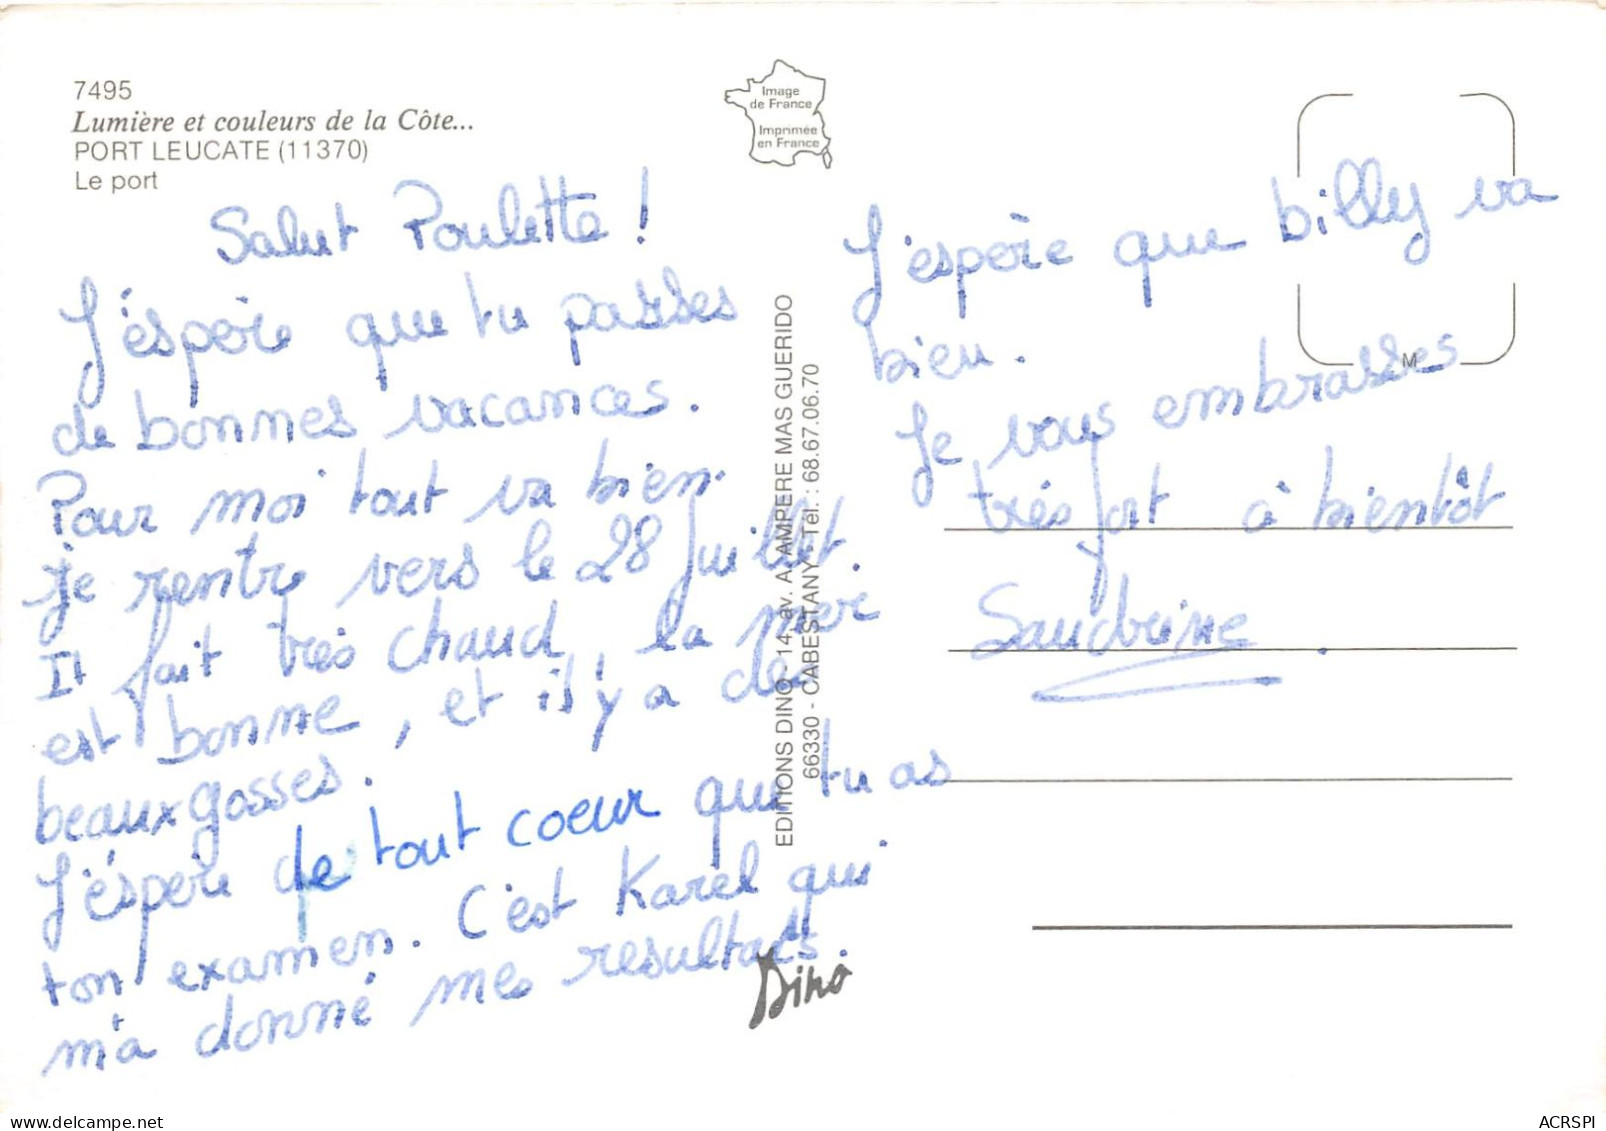 7495
Lumière et couleurs de la Côte...
PORT LEUCATE (11370)
Le port
Image
de France
Imprimée
en France
Salut Poulette !
J'éspère que tu passes
de bonnes vacances.
Pour moi tout va bien.
je rentre vers le 28 Juillet.
Il fait très chaud, la mer
est bonne, et il y a des
beaux gosses.
J'éspère de tout coeur que tu as
ton examen. C'est Karel qui
m'a donné mes resultats.
EDITIONS DINO - 14, av. A. AMPERE MAS GUERIDO
66330 - CABESTANY Tél. : 68.67.06.70
Dino
J'espère que billy va
bien.
Je vous embrasses
très fort à bientôt
Sandrine.
M
ACRSPI